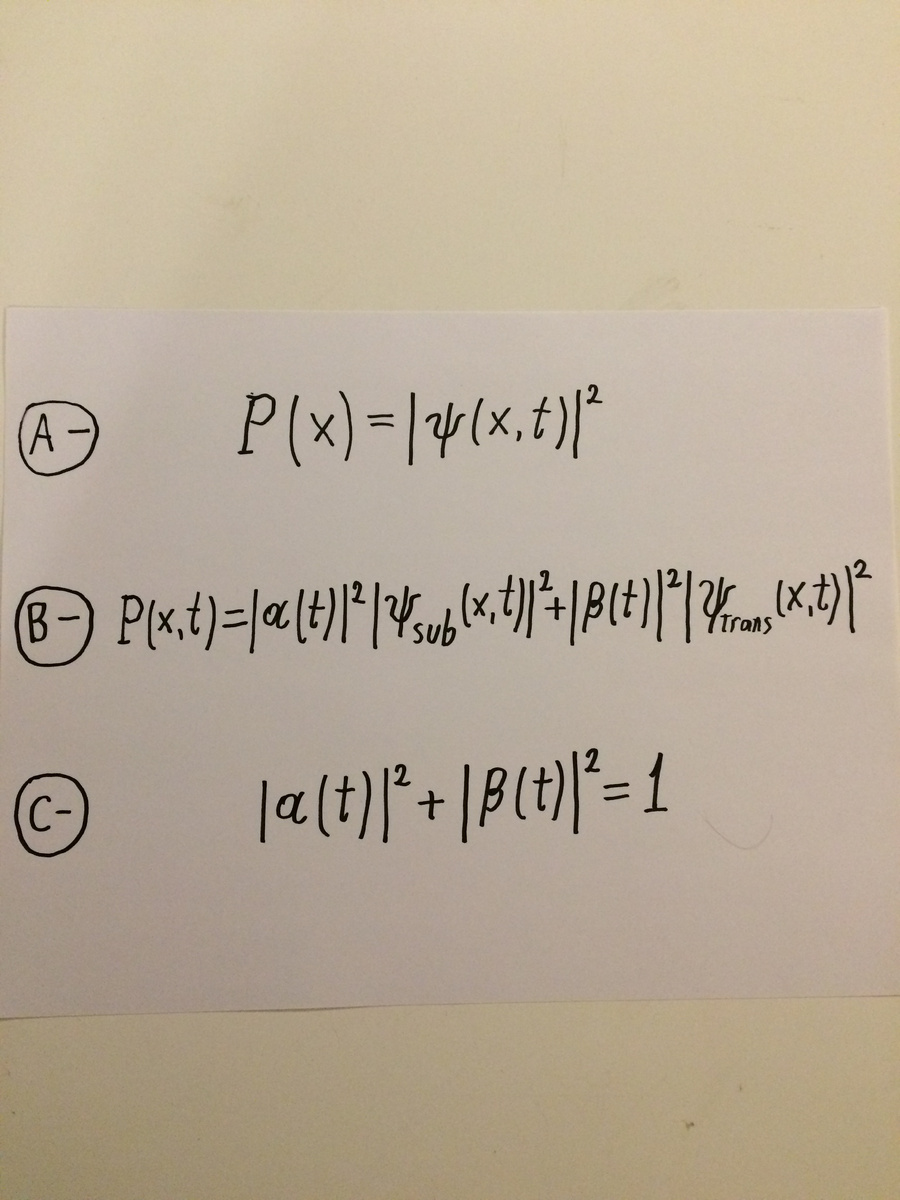 A- P(x)=|ψ(x,t)|²
B- P(x,t)=|α(t)|²|ψ_sub(x,t)|²+|β(t)|²|ψ_Trans(x,t)|²
C- |α(t)|²+|β(t)|²=1